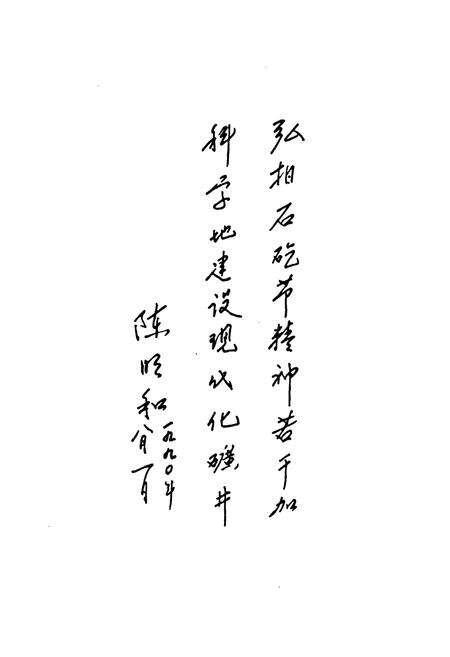 弘扬石矻节精神苦干加
科学地建设现代化礦井
陈明和
一九九〇年
八月一日